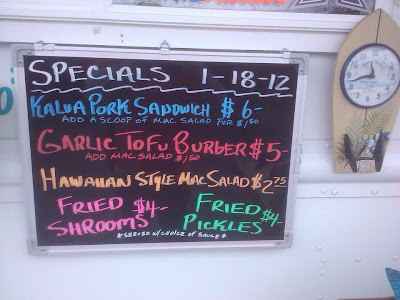 SPECIALS 1-18-12
KALUA PORK SANDWICH $6-
ADD A SCOOP OF MAC SALAD FOR $1.50
GARLIC TOFU BURGER $5-
ADD MAC SALAD $1.50
HAWAIIAN STYLE MAC SALAD $2.75
FRIED $4-
SHROOMS
FRIED $4-
PICKLES
*SERVED W/ CHOICE OF SAUCE*